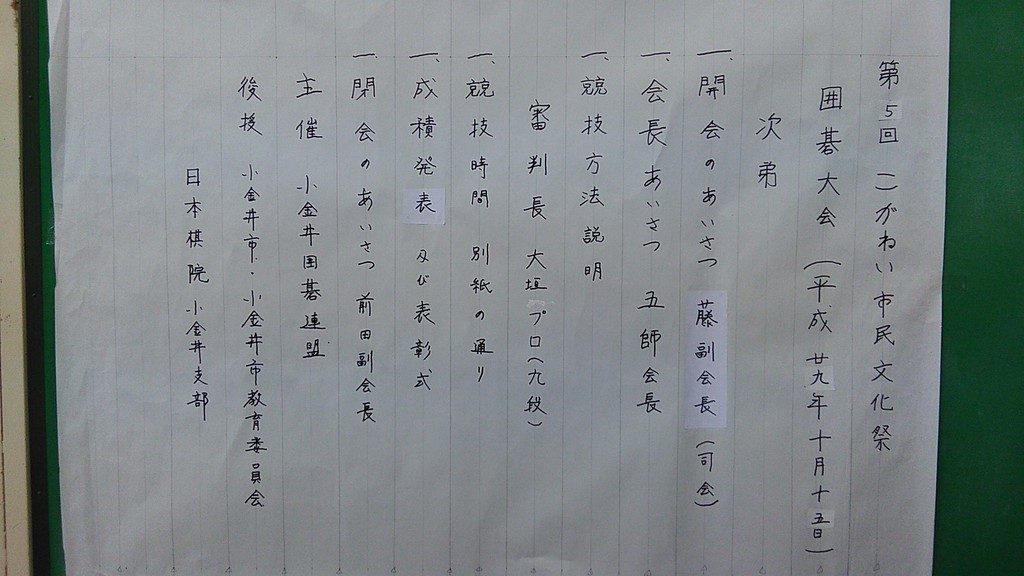 第5回 こがねい市民文化祭
囲碁大会(平成廿九年十月十五日)
次弟
一、開会のあいさつ 藤副会長(司会)
一、会長あいさつ 五師会長
一、競技方法説明
審判長 大垣プロ(九段)
一、競技時間 別紙の通り
一、成積発表 及び表彰式
一、閉会のあいさつ 前田副会長
主催 小金井囲碁連盟
後援 小金井市・小金井市教育委員会
日本棋院 小金井支部